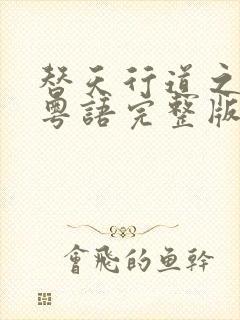 替天行道之
粵語完整版
會飛的魚幹